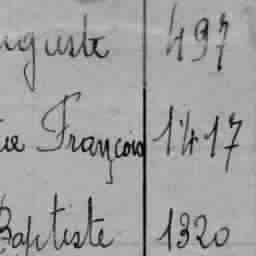 uguste 497
ie François 1417
Baptiste 1320